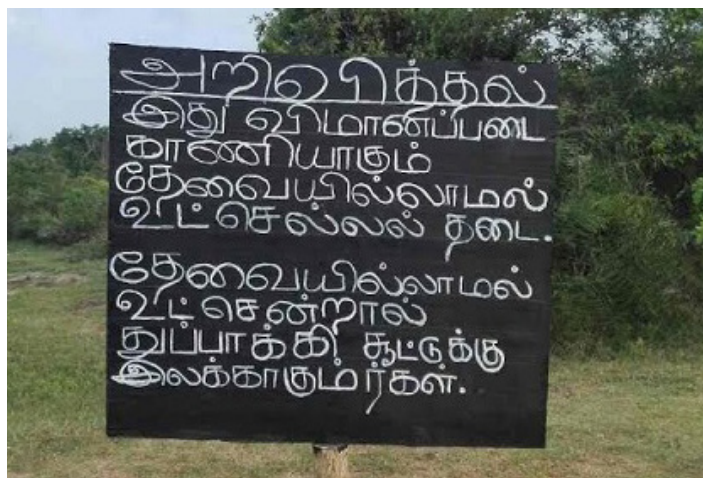 அறிவித்தல்
இது விமானப்படை
காணியாகும்
தேவையில்லாமல்
உட்செல்லல் தடை.
தேவையில்லாமல்
உட்சென்றால்
துப்பாக்கி சூட்டுக்கு
இலக்காகுமர்கள்.